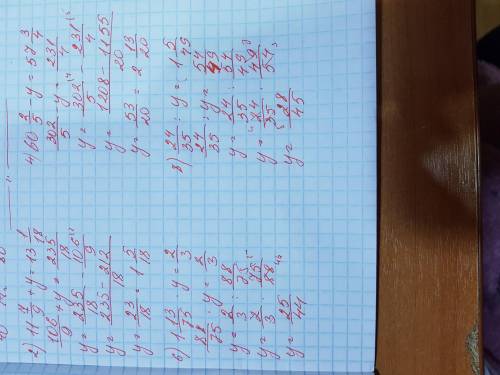 2) 11 7/9 + y = 13 1/18
106/9 + y = 235/18
y = 235/18 - 106/9
y = 235-212/18
y = 23/18 = 1 5/18
4) 60 2/5 - y = 57 3/4
302/5 - y = 231/4
y = 302/5 - 231/4
y = 1208-1155/20
y = 53/20 = 2 13/20
6) 1 13/75 · y = 2/3
88/75 · y = 2/3
y = 2/3 : 88/75
y = 2/3 · 75/88
y = 25/44
8) 24/35 : y = 1 5/49
24/35 : y = 54/49
y = 24/35 : 54/49
y = 24/35 · 49/54
y = 28/45